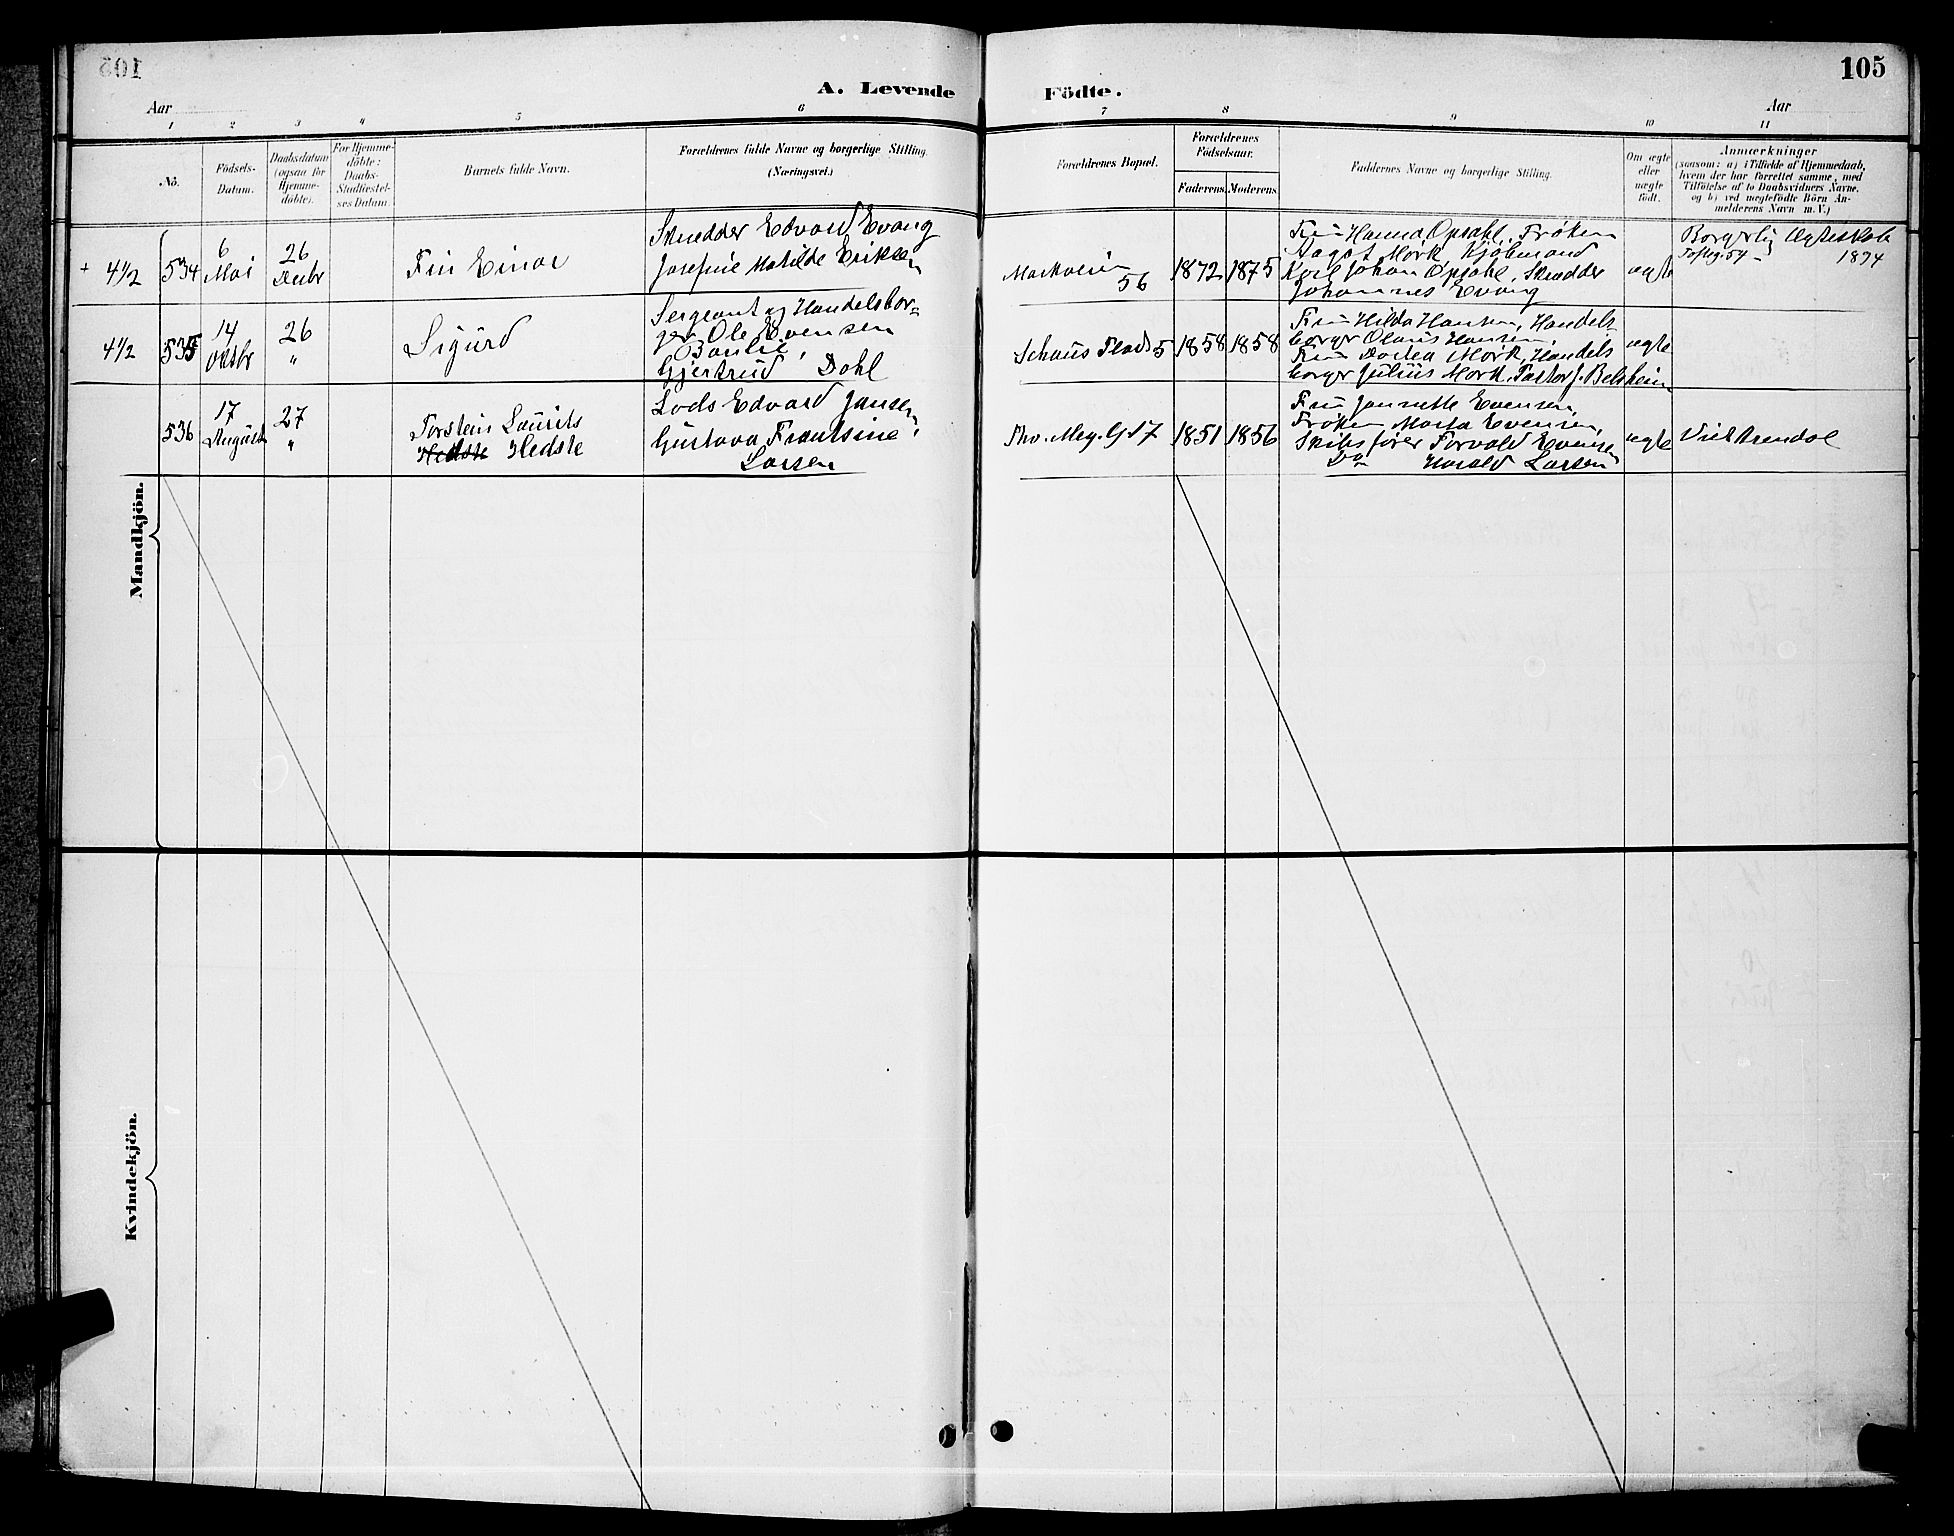 105
A. Levende Födte.
105
Aar
Aar
1 2 3 4 5 6 7 8 9 10 11
No.
Födsels-
Datum.
Daabsdatum
(ogsaa for
Hjemme-
döbte).
For Hjemme-
döbte:
Daabs-
Stadfæstel-
ses Datum.
Barnets fulde Navn.
Forældrenes fulde Navne og borgerlige Stilling.
(Næringsvei.)
Forældrenes Bopæl.
Forældrenes
Födselsaar.
Faderens.
Moderens.
Faddernes Navne og borgerlige Stilling.
Om ægte
eller
uægte
født.
Anmærkninger
(saasom: a) i Tilfælde af Hjemmedaab,
hvem der har forrettet samme, med
Tilföielse af to Daabsvidners Navne,
og b) ved uægtefödte Börn An-
melderens Navn m. V.)
+ 4 1/2
534
6
Mai
26
Decbr
Fin Einar
Skrædder Edvard Evang
Josefine Matilde Eriksen
Markveien
56
1872
1875
Fru Hanna Opsahl, Frøken
Aagot Mørk, Kjøbmand
Karl Johan Opsahl, Skrædder
Johannes Evang
ægte
Borgerlig Ægteskab
1894
4 1/2
535
14
Oktbr
26
"
Sigurd
Sergeant og Handelsbor-
ger Ole Evensen
Baulie,
Gjertrud Dahl
Schaus Plads 5
1858
1858
Fru Hilda Hansen, Handels-
borger Olaus Hansen,
Fru Dorthea Mørk, Handels
borger Julius Mørk, Pastor J. Belsheim
ægte
536
17
August
27
"
Torstein Laurits
Hedste Hedste
Lods Edvard Jansen,
Gustava Frantsine
Larsen
Thv. Mey. G 17
1851
1856
Fru Jannette Evensen,
Frøken Marta Evensen,
Skibsfører Torvald Evensen
Do Harald Larsen
ægte
Viet Arendal
Mandkjön.
Kvindekjön.